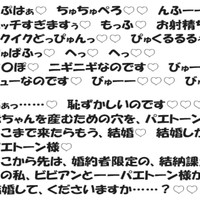 ぷはぁ♡ ちゅちゅぺろ♡♡ んふー
ッチすぎますぅ♡ もっふ♡ お射精
クイクどっぴゅんっ♡♡ ぴゅくるるる
ゅばふっ♡ へっ♡ へっ♡♡
〇ぽ♡ ニギニギなのです♡ びゅ
ューなのです♡ びゅーー♡♡♡ びゅ
ぁっ……♡ 恥ずかしいのです♡♡
ちゃんを産むための穴を、パエトーン様
こまで来たらもう、結婚♡ 結婚し
エトーン様♡
こから先は、婚約者限定の、結納
の私、ビビアンと――パエトーン様が
結婚して、くださいますか……？♡♡